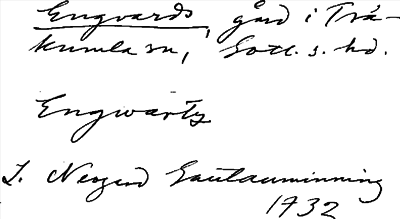 Engvards, gård i Trä-
kumla sn, Gotl. s. hd.
Engwartz
J. Neogard Gautauminning
1732